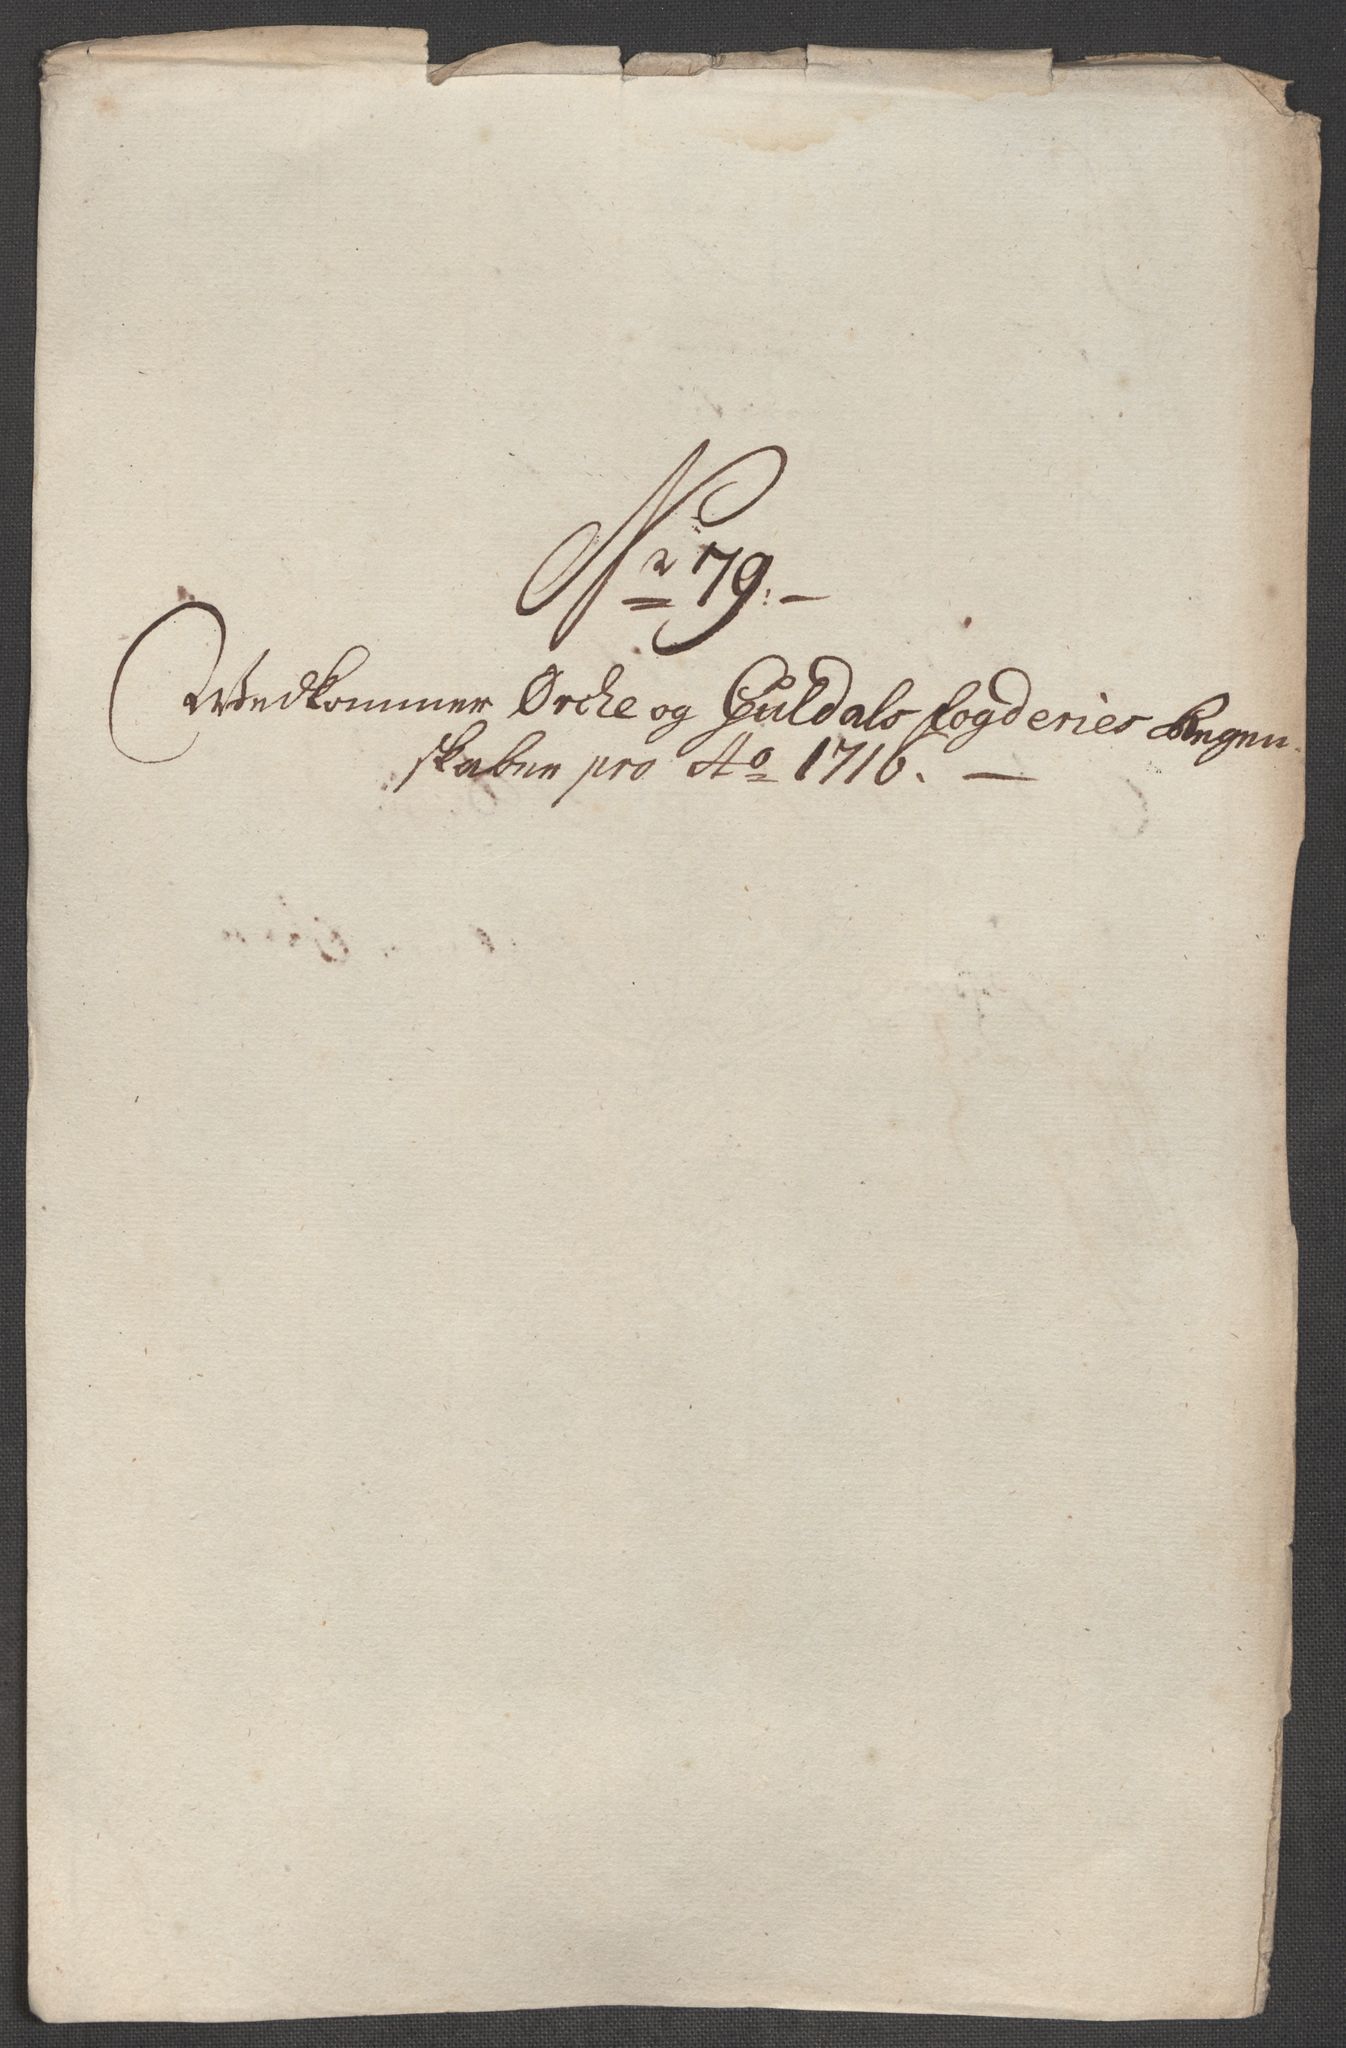 No 79.
Wedkommer Ørche og Guldals fogderies Regen-
skaber pro Ao 1716.